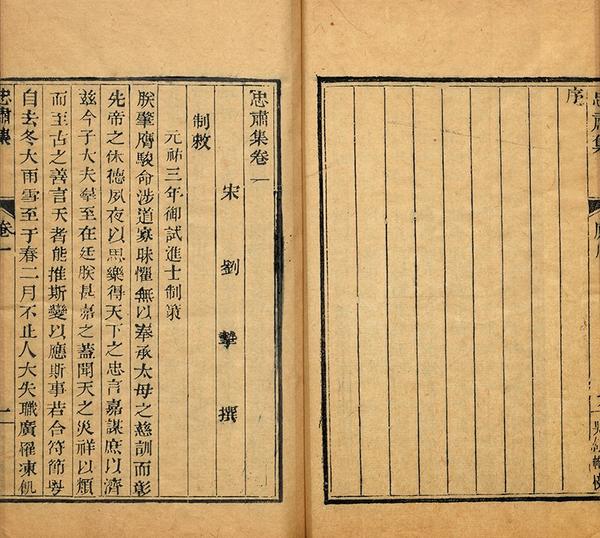 忠肅集
序
忠肅集卷一
宋 劉摯 撰
制敕
元祐三年御試進士制策
朕肇膺駿命涉道寡昧懼無以奉承太母之慈訓而彰
先帝之休德夙夜以思樂得天下之忠言嘉謀庶以濟
茲今子大夫舉至在廷朕甚嘉之蓋聞天之災祥以類
而至古之善言天者能推斯變以應斯事若合符節粤
自去冬大雨雪至于春二月不止人大失職廣罹凍飢
忠肅集 卷一 一